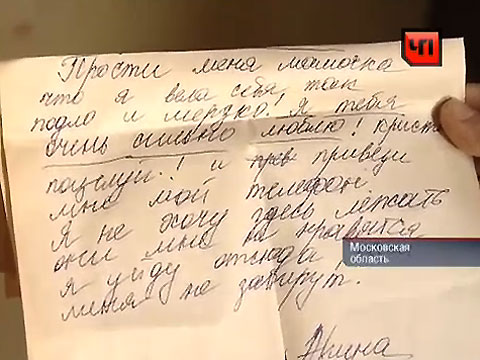 ЧП
Прости меня мамочка
что я вела себя, так
подло и мерзко! Я тебя
очень сильно люблю! Крист
поцелуй.! и прев приведи
мне мой телефон.
Я не хочу здесь лежать
они мне не нравятся
я уйду отсюда
меня не заберут.
Московская
область